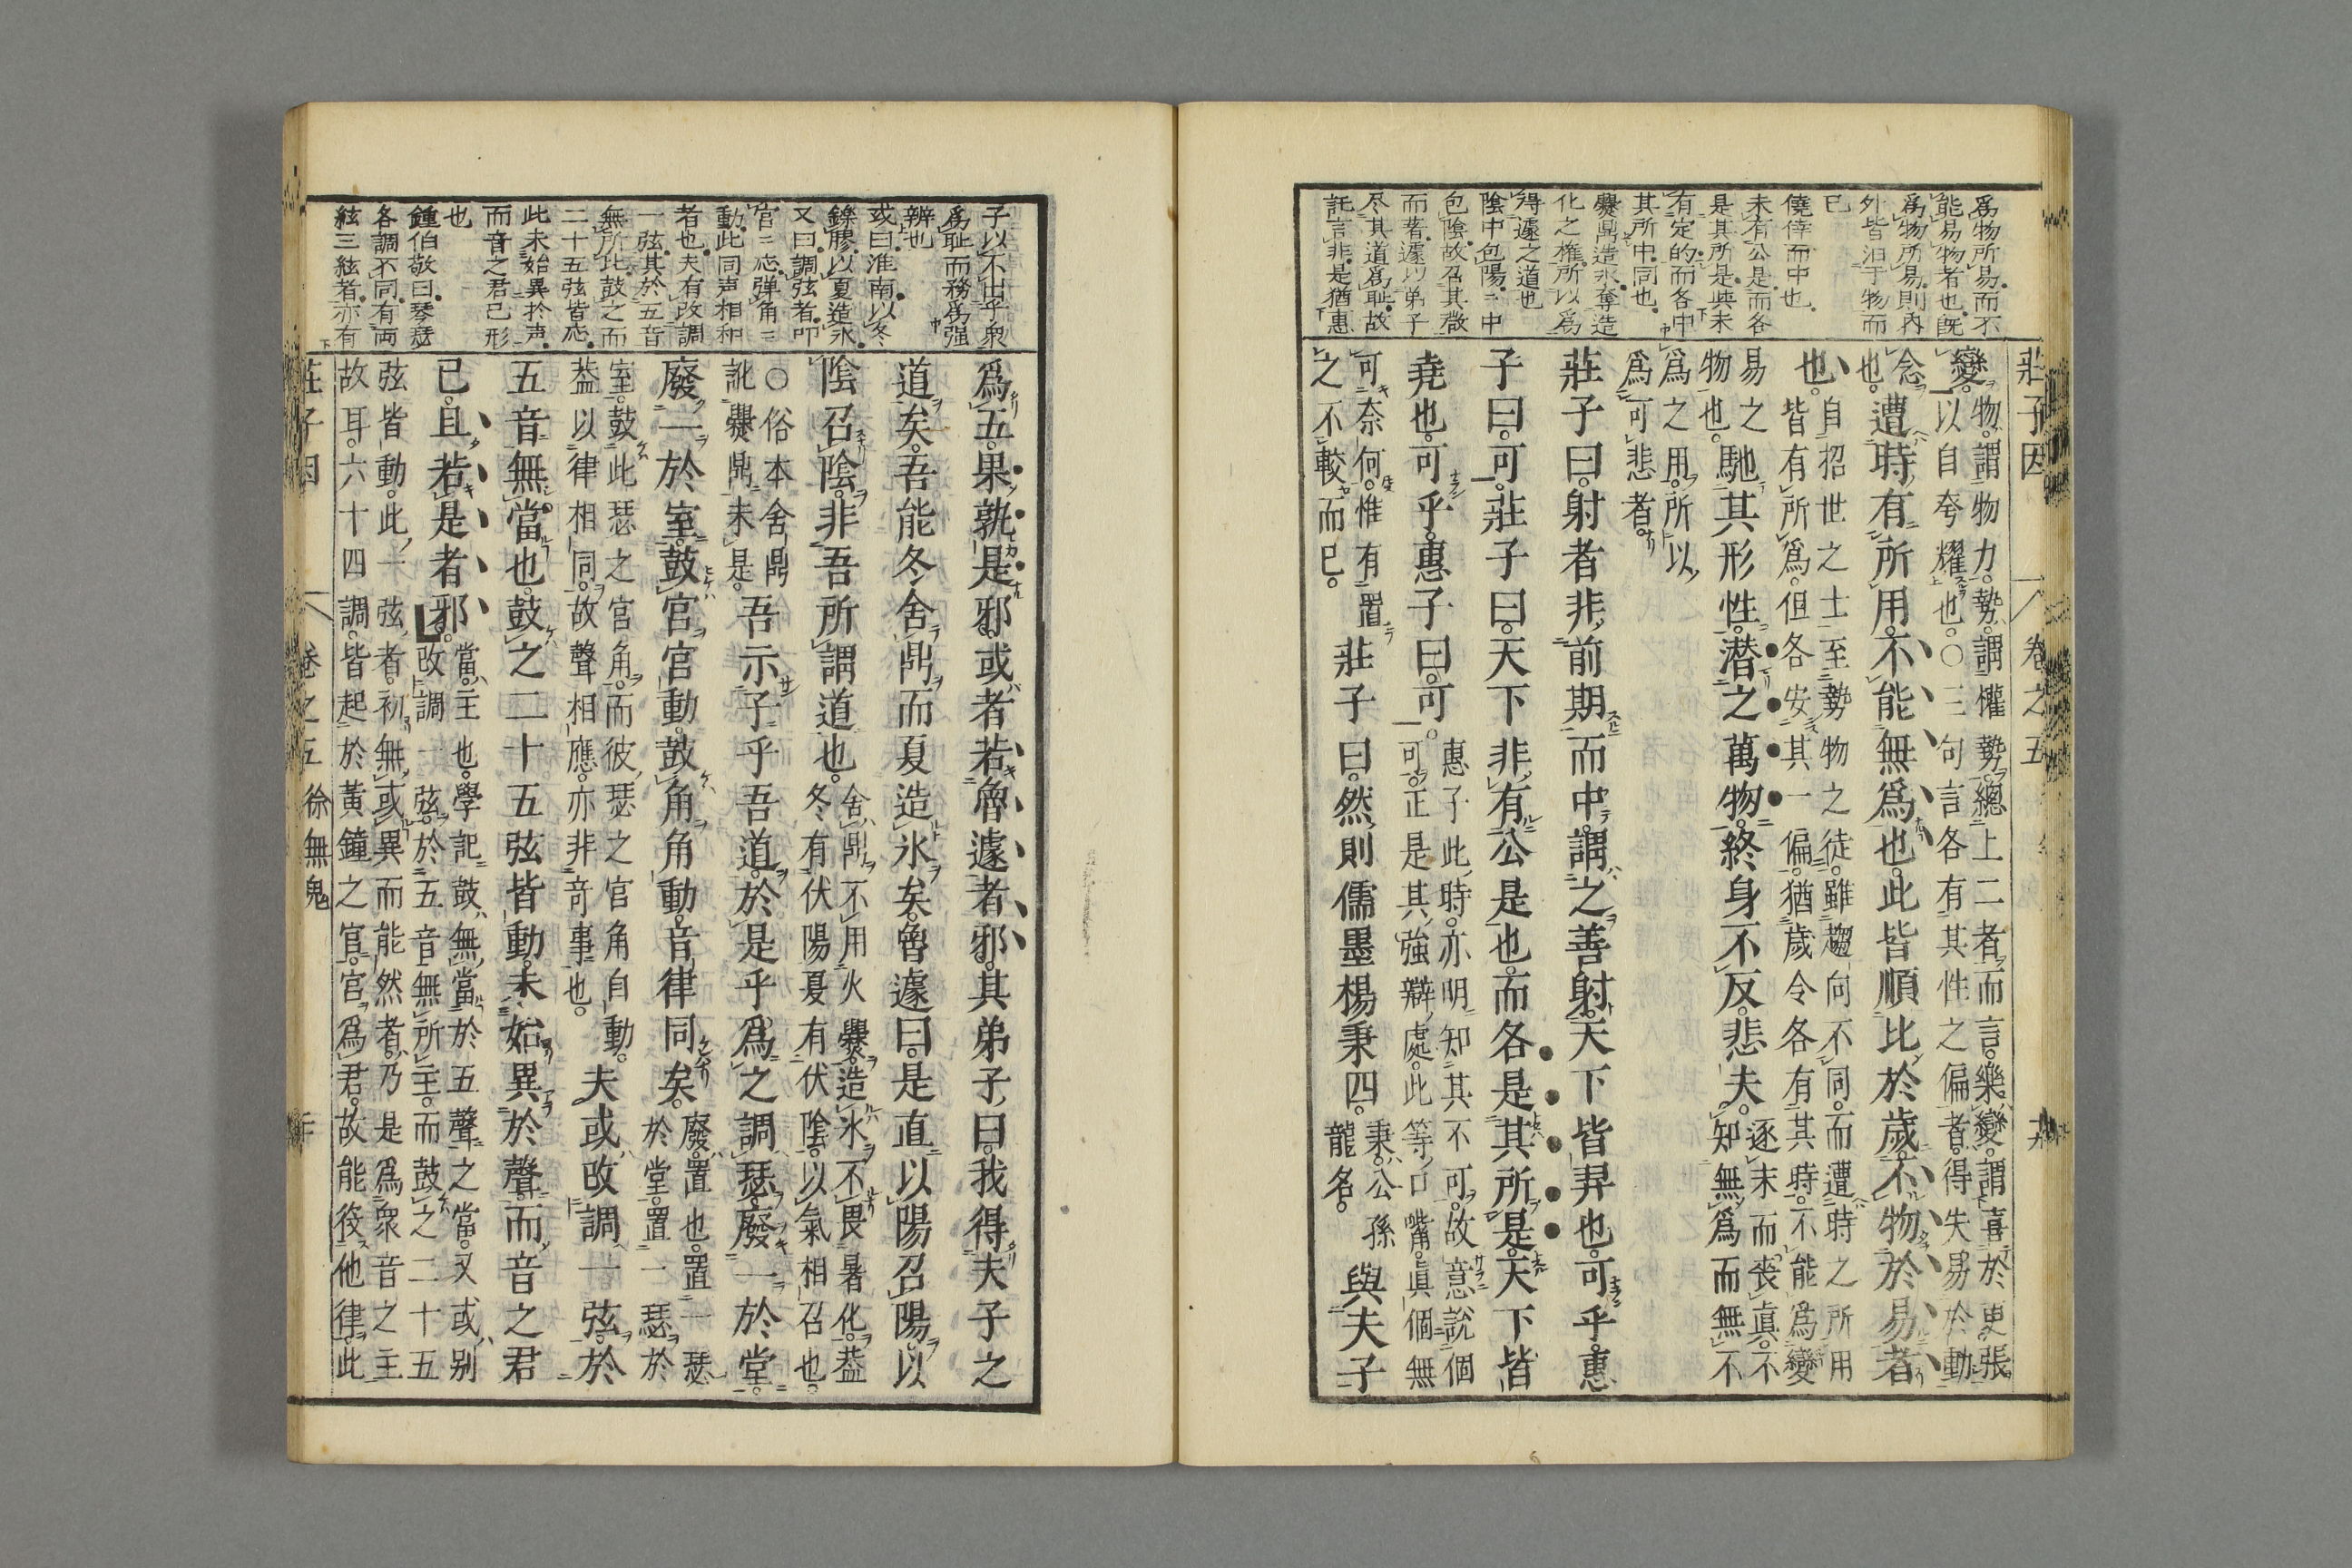 莊子因　卷之五　十九
為物所易而不
能易物者也既
為物所易則內
外皆汩于物而
已
僥倖而中也
未有公是而各
是其所是與未
有定的而各中
其所中同也
爨鼎造氷奪造
化之權所以為
得遽之道也
陰中包陽陽中
包陰故召其微
而著遽以弟子
尽其道為恥故
託言非是猶惠
變。物。謂物力。勢。謂權勢。總上二者而言。樂變。謂喜於更張
以自夸耀也。○三句言各有其性之偏者。得失易於動
念也。遭時有所用。不能無為也。此皆順比於歲。不物於易者
也。自招世之士至勢物之徒。雖趨向不同。而遭時之所用
皆有所為。但各安其一偏。猶歲令各有其時。不能為變
易之
物也。馳其形性。潜之萬物。終身不反。悲夫。逐末而喪眞。不
知無為而無不
為之用。所以
為可悲者。
莊子曰。射者非前期而中。謂之善射。天下皆羿也。可乎。惠
子曰。可。莊子曰。天下非有公是也。而各是其所是。天下皆
堯也。可乎。惠子曰。可。惠子此時。亦明知其不可。故意說個
可。正是其強辯處。此等口嘴。眞個無
可奈何。惟有置
之不較而已。莊子曰。然則儒墨楊秉四。秉。公孫
龍名。與夫子
子以不出乎衆
為恥而務為强
辨也
或曰淮南以冬
鑠膠以夏造氷
又曰調弦者叩
宮宮応弾角角
動此同声相和
者也夫有改調
一弦其於五音
無所比鼓之而
二十五弦皆応
此未始異於声
而音之君已形
也
鍾伯敬曰琴瑟
各調不同有両
絃三絃者亦有
為五。果孰是邪。或者若魯遽者邪。其弟子曰。我得夫子之
道矣。吾能冬舍鼎而夏造氷矣。魯遽曰。是直以陽召陽。以
陰召陰。非吾所謂道也。舍鼎不用火爨。造氷不畏暑化。葢
冬有伏陽夏有伏陰。以氣相召也。
○俗本舍鼎
訛爨鼎未是。吾示子乎吾道。於是乎為之調瑟。廢一於堂。
廢一於室。鼓宮宮動。鼓角角動。音律同矣。廢。置也。置一瑟
於堂。置一瑟於
室。鼓此瑟之宮角。而彼瑟之宮角自動。
葢以律相同。故聲相應。亦非奇事也。夫或改調一弦。於
五音無當也。鼓之二十五弦皆動。未始異於聲。而音之君
已。且若是者邪。當。主也。學記。鼓無當於五聲之當。又或別
改調一弦。於五音無所主。而鼓之二十五
弦皆動。此一弦者。初無或異而能然者。乃是為衆音之主
故耳。六十四調。皆起於黃鐘之宮。宮為君。故能役他律。此
莊子因　卷之五　徐無鬼　二十